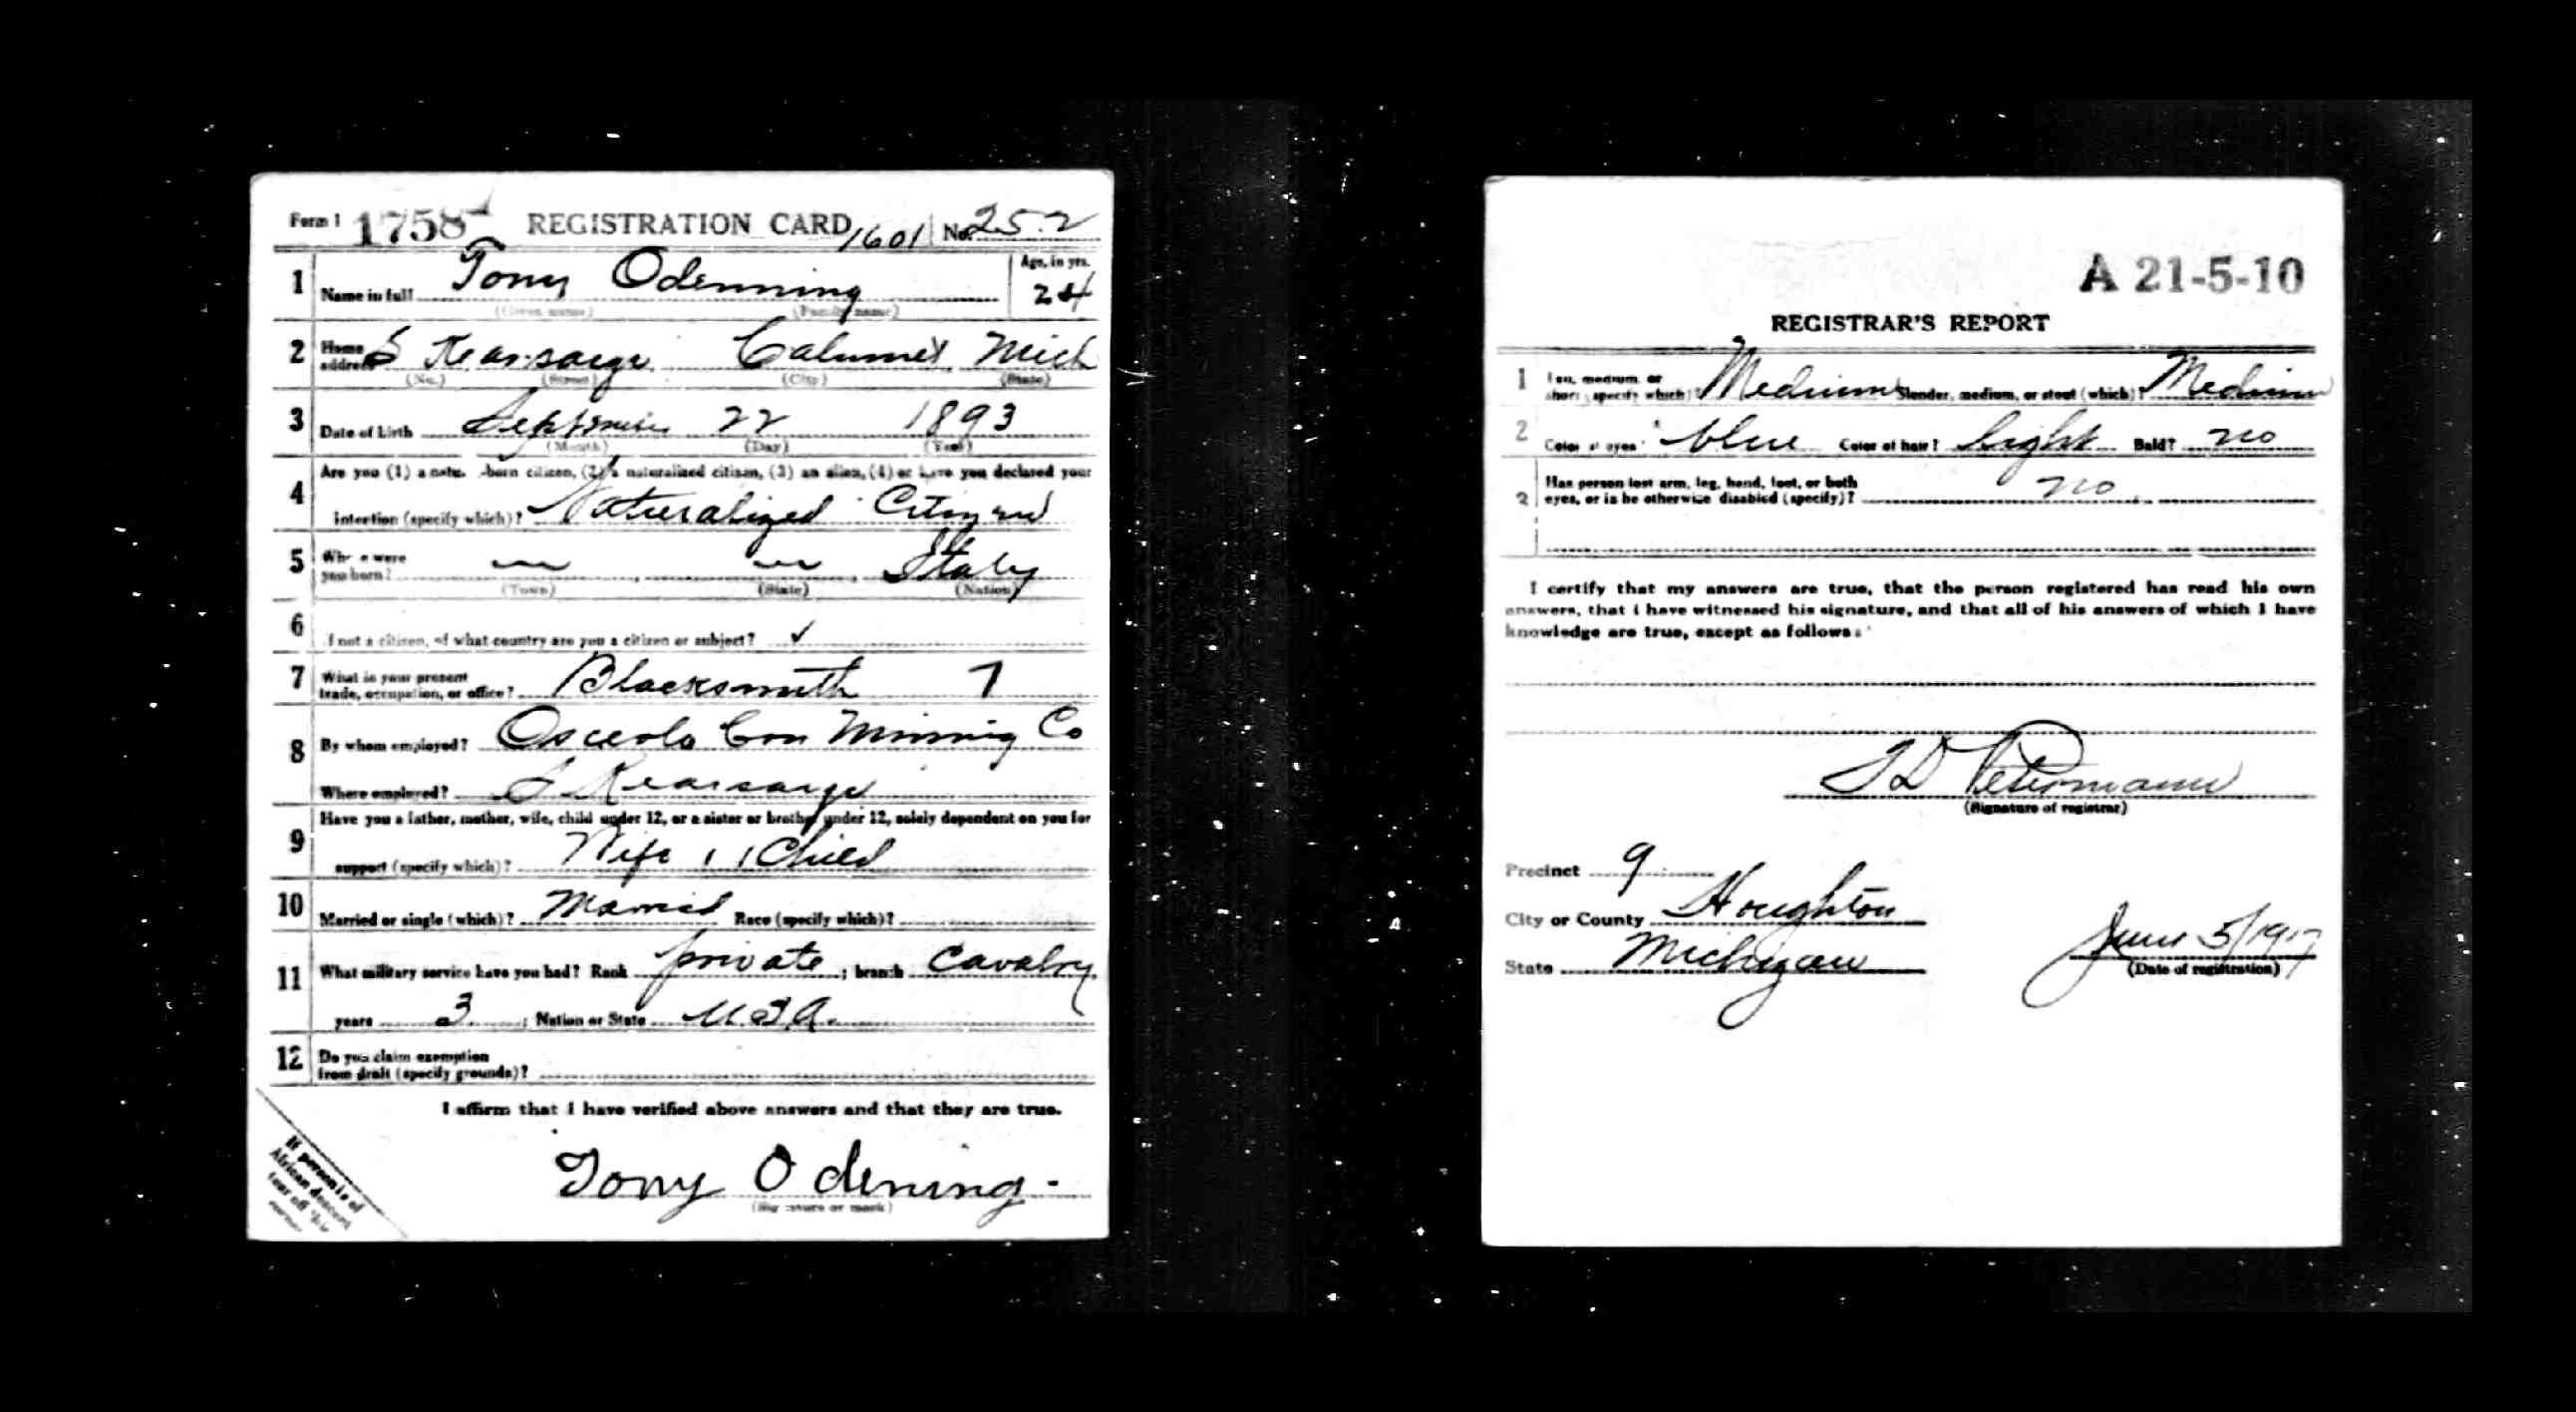 Form 1 1758 REGISTRATION CARD 1601 No. 252
1 Name in full Tony Odenning Age, in yrs. 24
(Given name) (Family name)
2 Home address S Kearsarge Calumet Mich
(No.) (Street) (City) (State)
3 Date of birth September 22 1893
(Month) (Day) (Year)
Are you (1) a natu. -born citizen, (2) a naturalized citizen, (3) an alien, (4) or have you declared your
4 intention (specify which)? Naturalized Citizen
5 Where were you born? Italy
(Town) (State) (Nation)
6 I not a citizen, of what country are you a citizen or subject? ✓
7 What is your present trade, occupation, or office? Blacksmith 7
8 By whom employed? Osceola Con Mining Co
Where employed? S Kearsarge
Have you a father, mother, wife, child under 12, or a sister or brother under 12, solely dependent on you for
9 support (specify which)? Wife 1 Child
10 Married or single (which)? Married Race (specify which)?
11 What military service have you had? Rank private ; branch Cavalry
years 3 ; Nation or State U.S.A.
12 Do you claim exemption
from draft (specify grounds)?
I affirm that I have verified above answers and that they are true.
Tony Odening
(Signature or mark)
If person is of
African descent
tear off this
corner
A 21-5-10
REGISTRAR'S REPORT
1 Tall, medium, or
short (specify which)? Medium Slender, medium, or stout (which)? Medium
2 Color of eyes? blue Color of hair? light Bald? no
3 Has person lost arm, leg, hand, foot, or both
eyes, or is he otherwise disabled (specify)? no
I certify that my answers are true, that the person registered has read his own
answers, that I have witnessed his signature, and that all of his answers of which I have
knowledge are true, except as follows:
(Signature of registrar)
Precinct 9
City or County Houghton
State Michigan June 5/1917
(Date of registration)